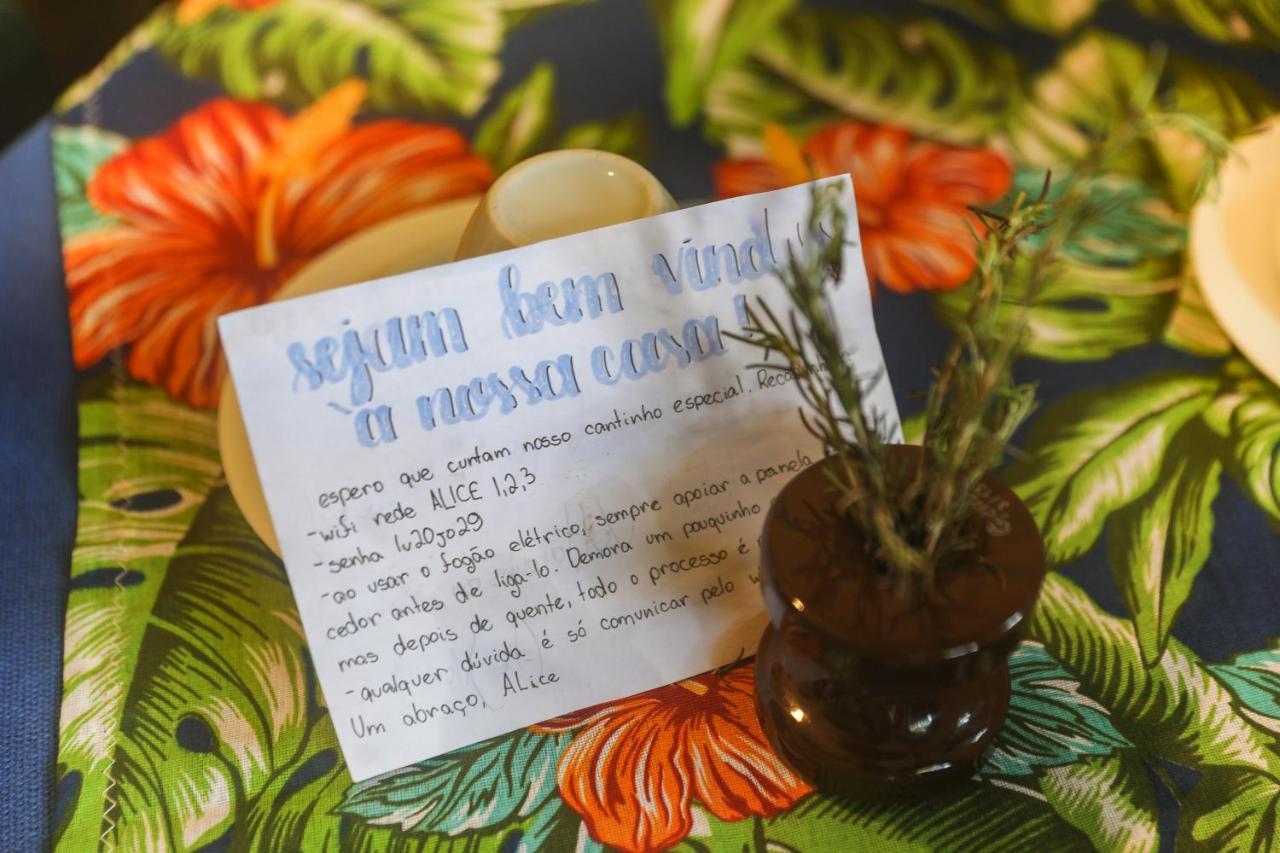 sejam bem vind
à nossa casa!
espero que curtam nosso cantinho especial.
-wifi rede ALICE 1,2,3
-senha lu20jo29
-ao usar o fogão elétrico, sempre apoiar a panela
cedor antes de liga-lo. Demora um pouquinho
mas depois de quente, todo o processo é
-qualquer dúvida é só comunicar pelo
Um abraço, ALice